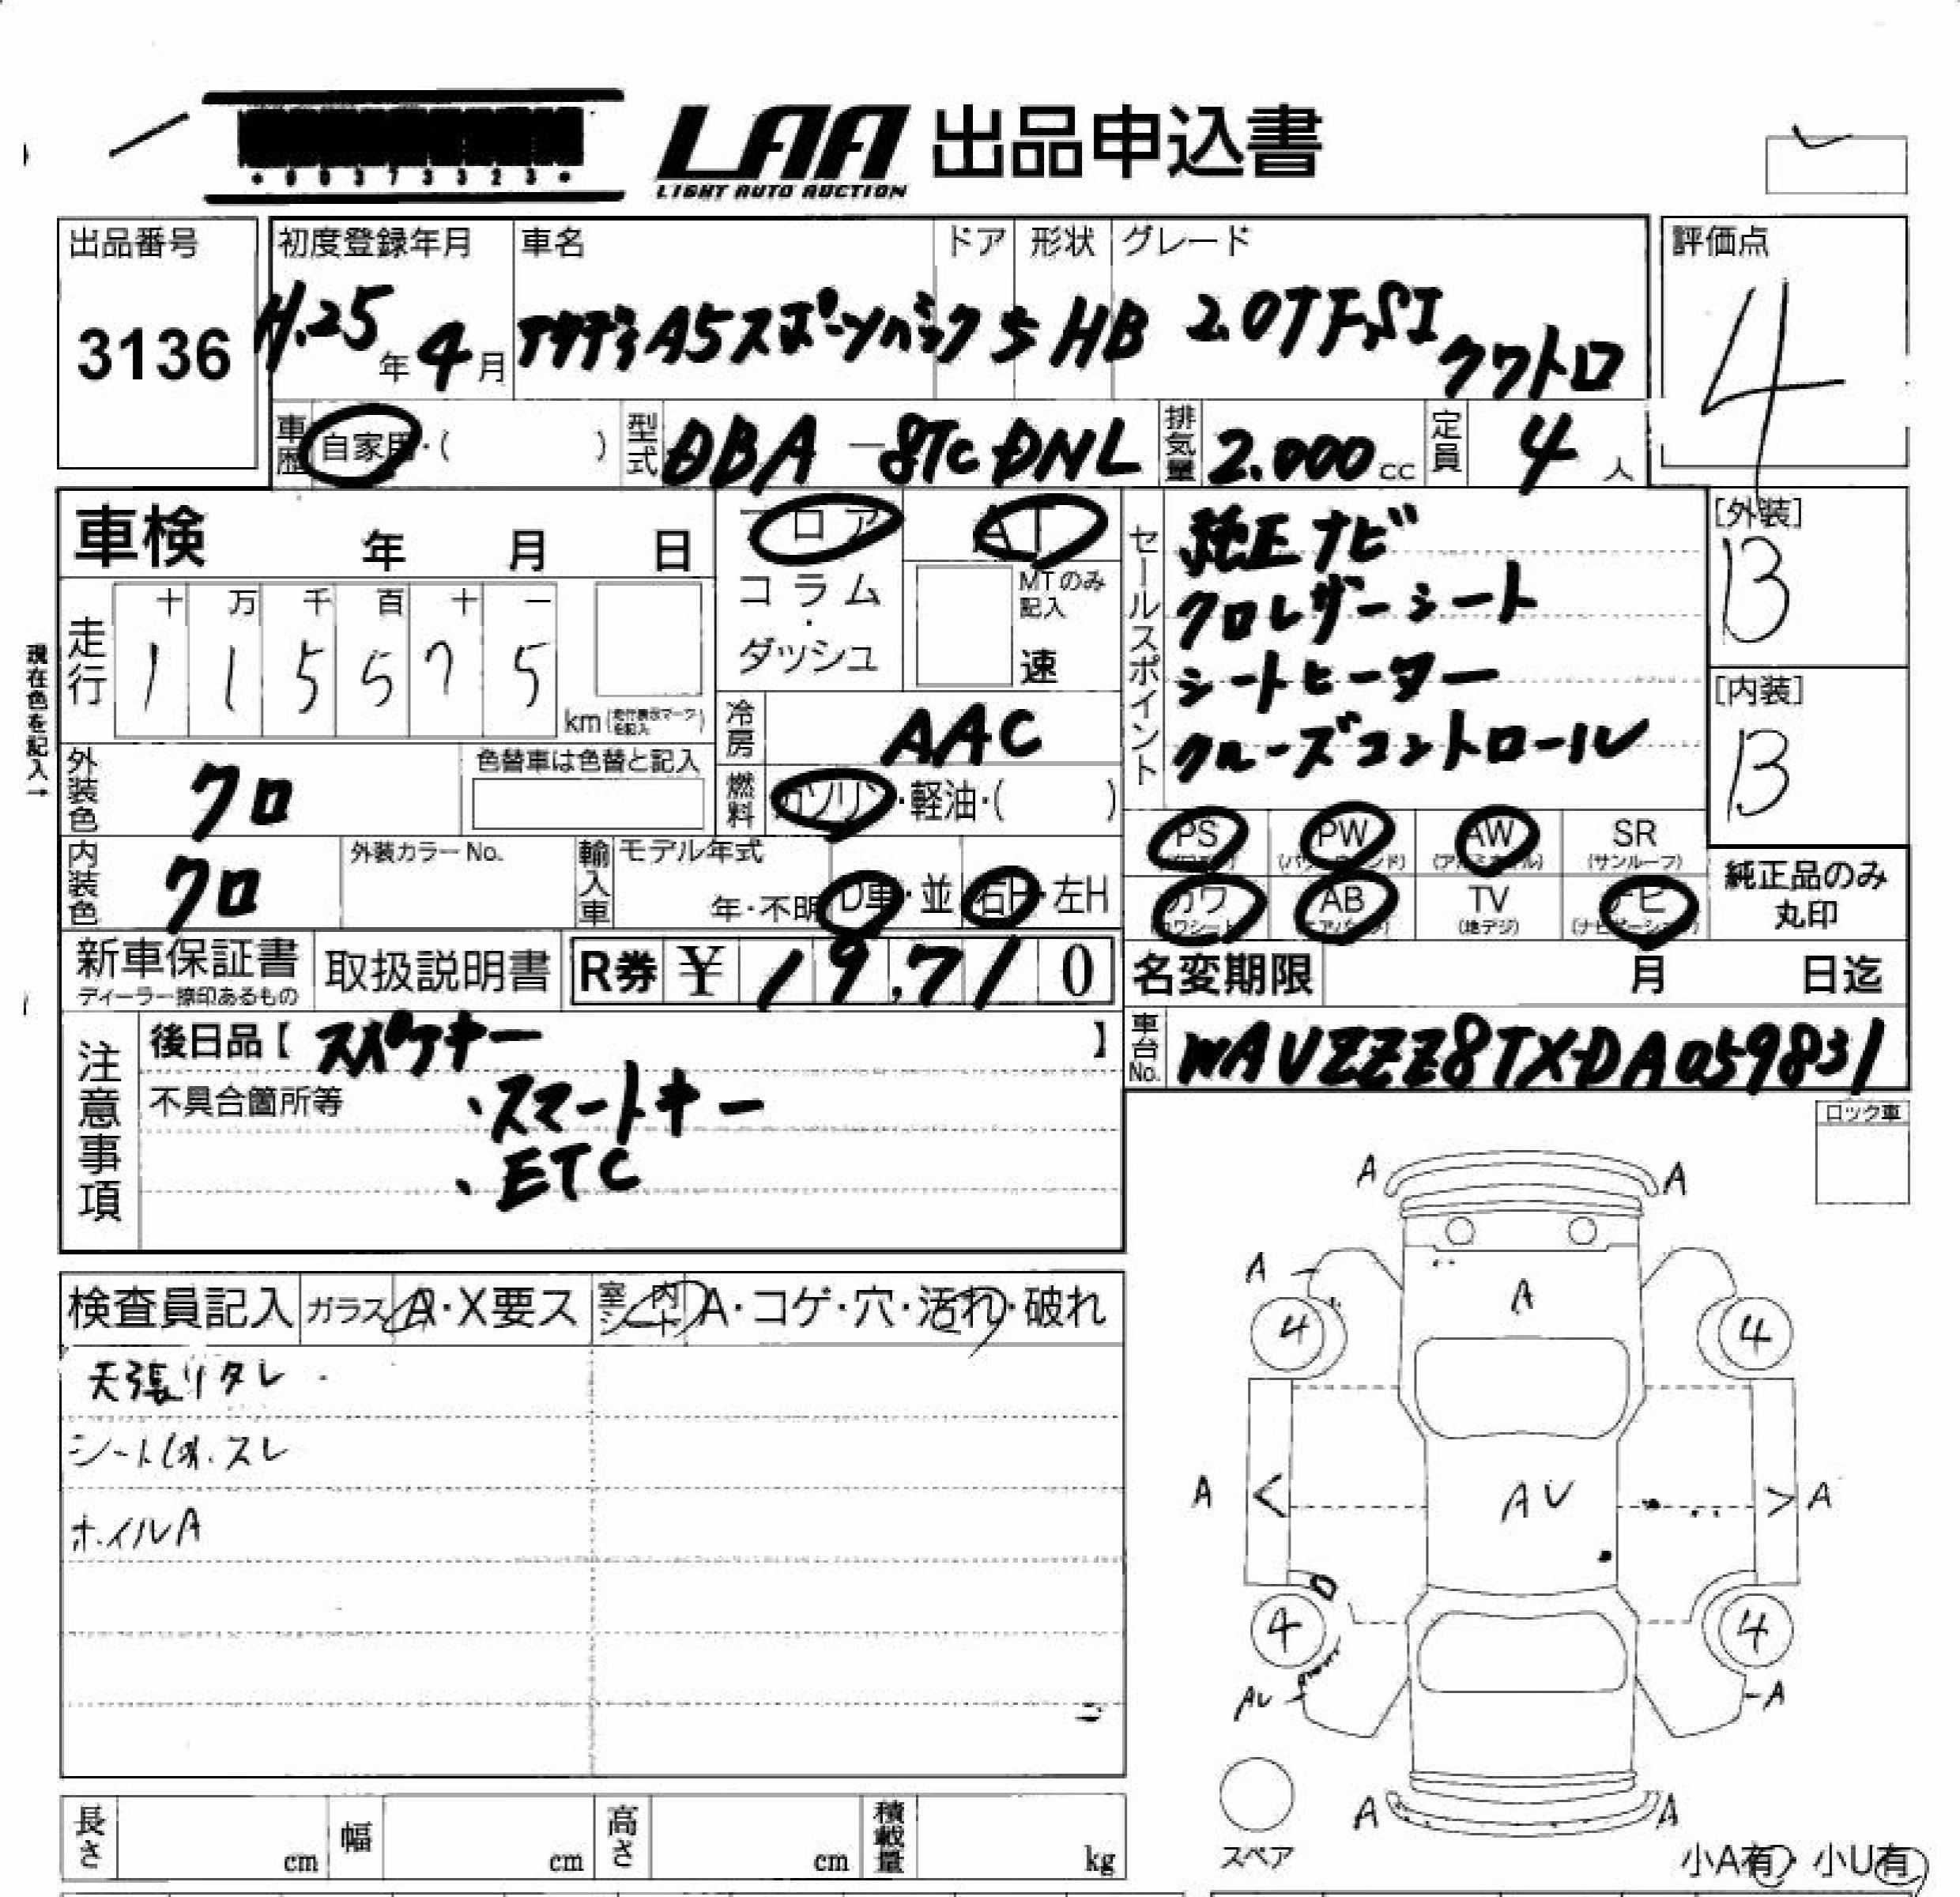 *00373323*
LAA 出品申込書
LIGHT AUTO AUCTION
出品番号
3136
初度登録年月
H.25年4月
車名
アウディA5スポーツバック
ドア
5
形状
HB
グレード
2.0TFSI
クワトロ
評価点
4
車歴 自家用・( )
型式 DBA-8TCDNL
排気量 2.000cc
定員 4人
車検 年 月 日
フロア
コラム
・
ダッシュ
AT
MTのみ
記入
速
現在色を記入→
走行
十 万 千 百 十 一
1 1 5 5 7 5
km(走行表示マークを記入)
冷房 AAC
燃料 ガソリン・軽油・( )
外装色 クロ
色替車は色替と記入
内装色 クロ
外装カラーNo.
輸入車 モデル年式
年・不明 D車・並 右H・左H
セールスポイント
純正ナビ
クロレザーシート
シートヒーター
クルーズコントロール
[外装]
B
[内装]
B
PS PW (パワーウインド) AW (アルミホイル) SR (サンルーフ)
カワ (カワシート) AB (エアバック) TV (地デジ) ナビ (ナビゲーション)
純正品のみ
丸印
新車保証書
ディーラー捺印あるもの
取扱説明書
R券 ¥ 19,710
名変期限 月 日迄
車台No. WAUZZZ8TXDA059831
注意事項
後日品【 スペアキー 】
不具合箇所等
、スマートキー
、ETC
ロック車
検査員記入 ガラス A・X要ス 室内シート A・コゲ・穴・汚れ・破れ
天張りタレ
シートシワ.スレ
ホイルA
A A
A A
4 4
A < AU > A
4 4
AU A
A A
スペア
小A有・小U有
長さ cm 幅 cm 高さ cm 積載量 kg